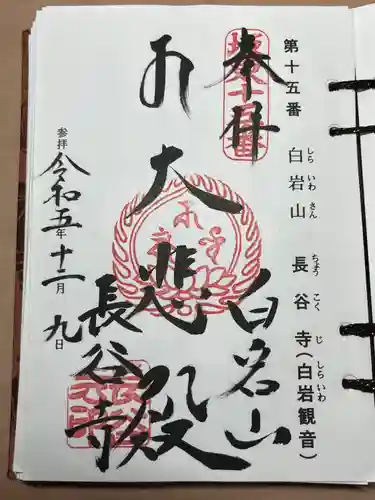 第十五番 白岩山 長谷寺(白岩観音)
しら いわ さん ちょう こく じ しらいわ
奉拝
白岩山
大悲殿
長谷寺
参拝 令和五年十二月九日